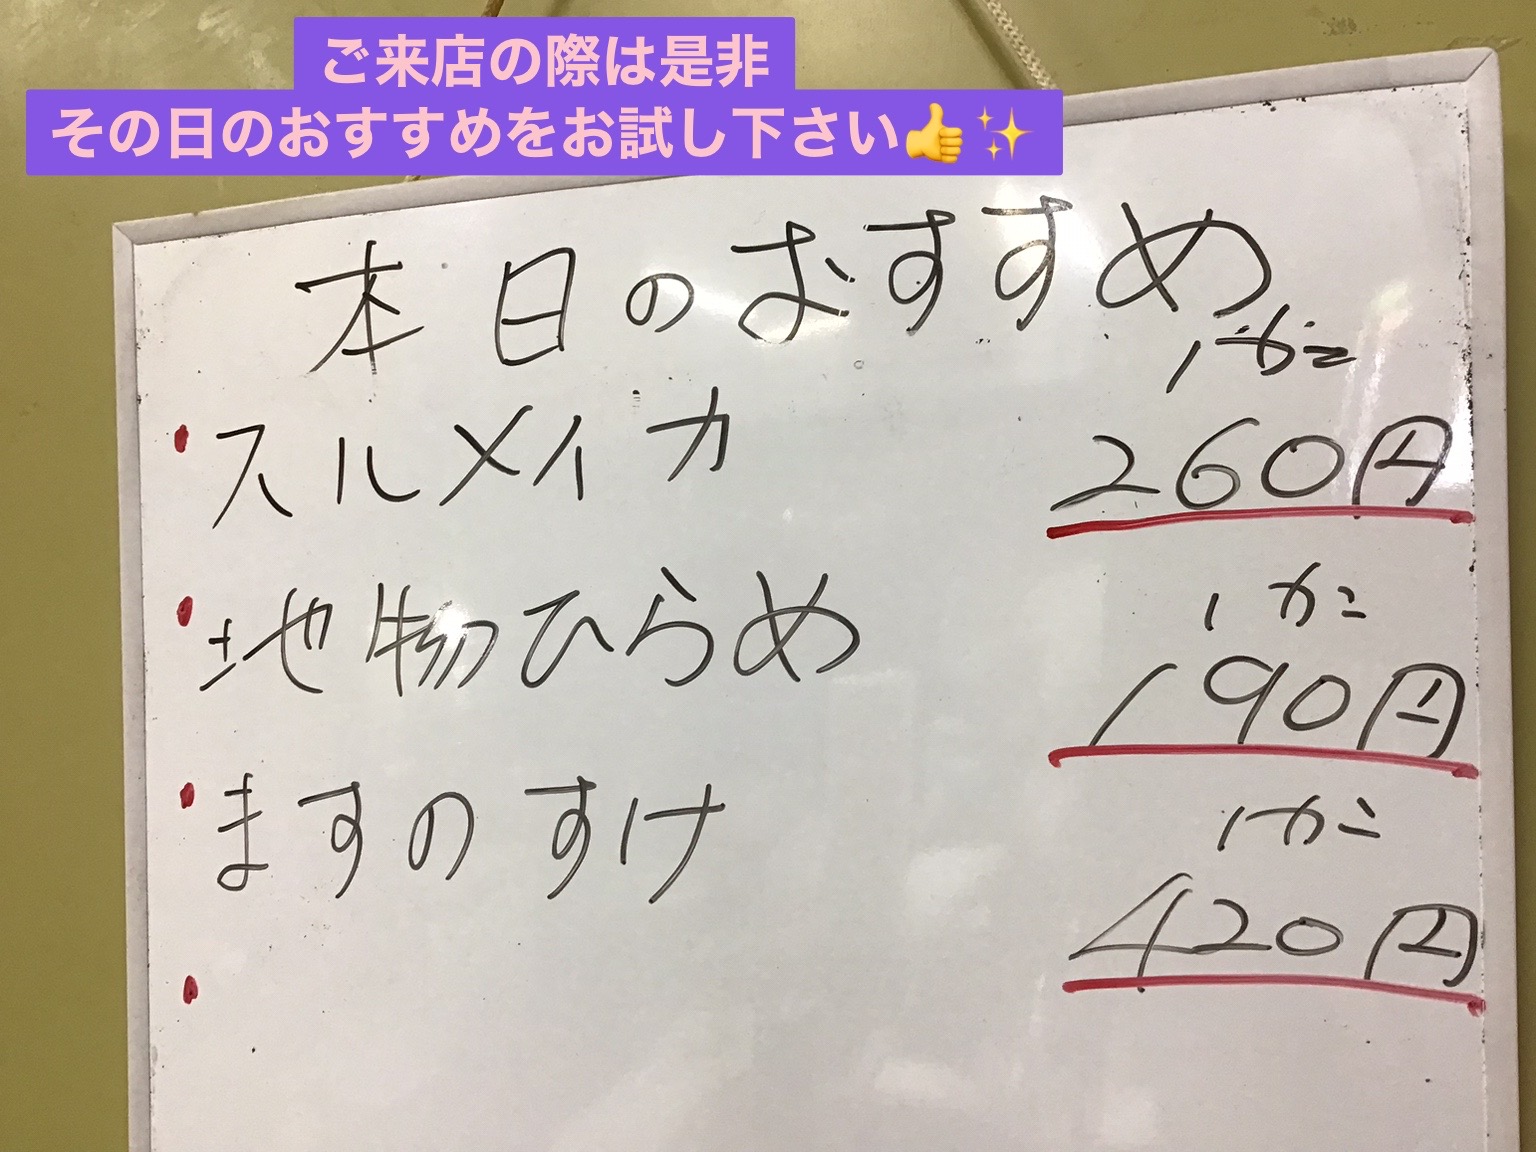 ご来店の際は是非
その日のおすすめをお試し下さい👍✨
本日のおすすめ
1かに
・スルメイカ 260円
1かに
・地物ひらめ 190円
1かに
・ますのすけ 420円
・